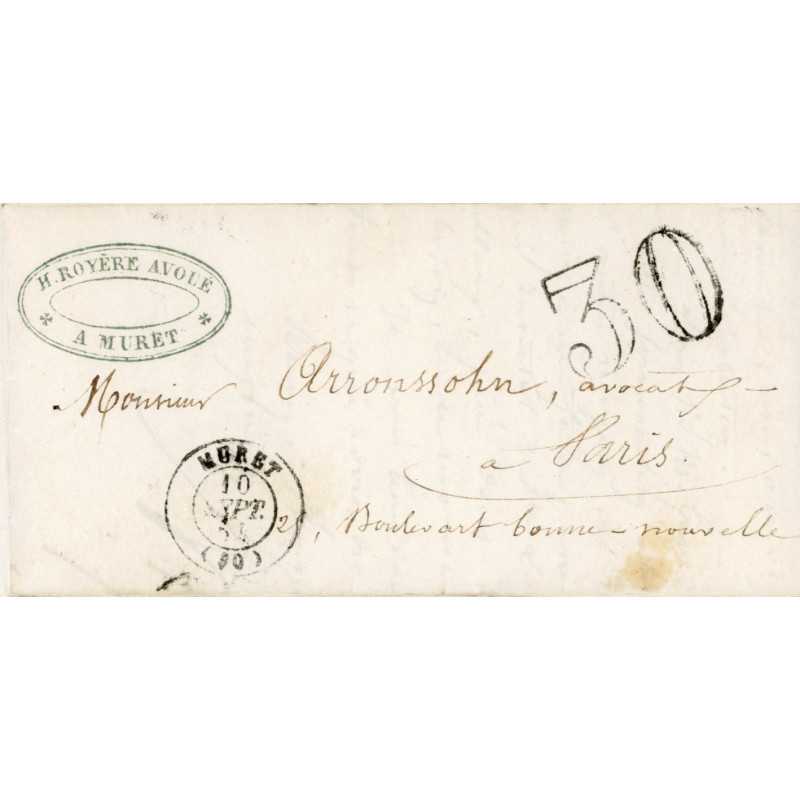 H. ROYÈRE AVOUÉ
A MURET
30
Monsieur Arronssohn, avocat
a Paris.
MURET
10
SEPT.
(30)
25, Boulevart bonne-nouvelle